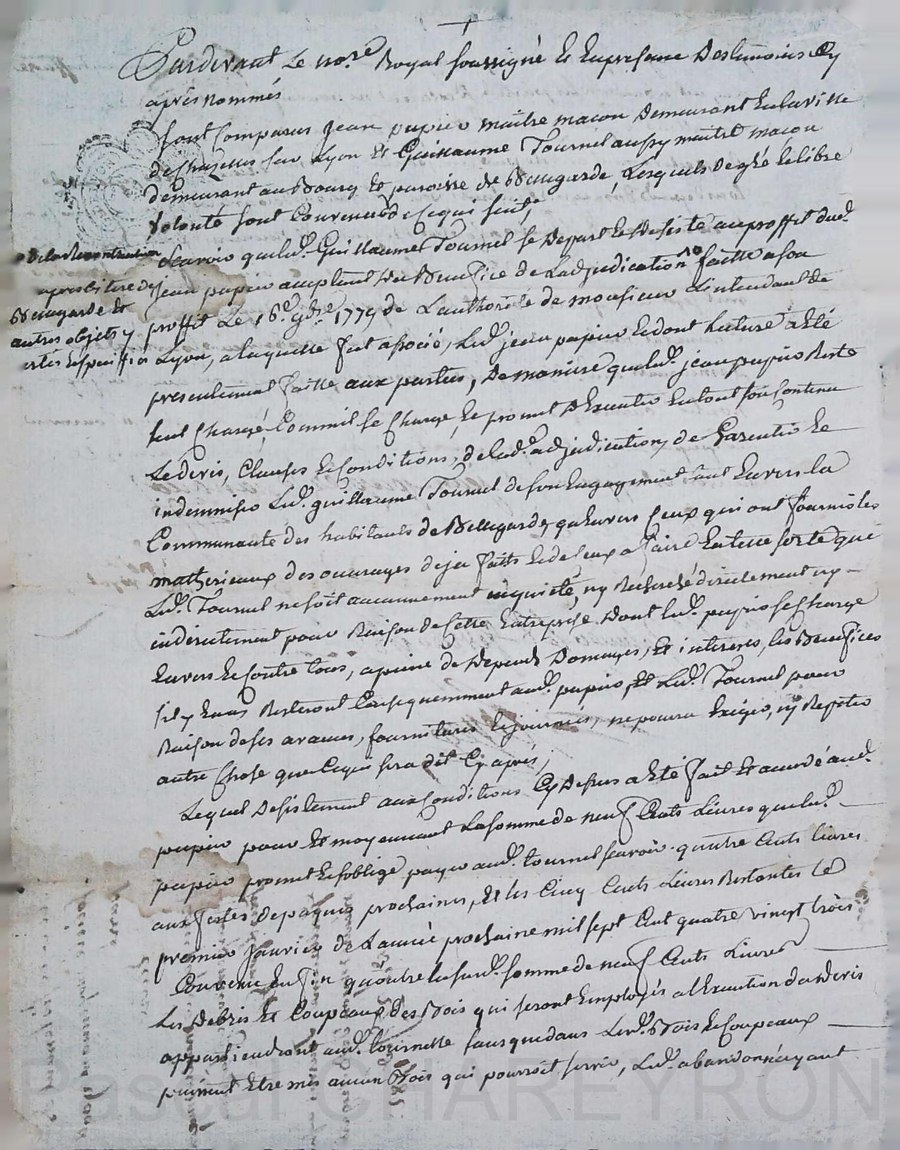 Pardevant Le no.re Royal soussigné Et En presence Des temoins Cy
après nommés
sont Comparus jean papier maitre macon Demeurant En la ville
de Chazelles sur Lyon Et Guillaume Tournel aussy maitre macon
demeurant au Bourg Et paroisse de Bellegarde, Lesquels de gré Et libre
volonté sont Convenus de Ce qui suit,
sçavoir que led. Guillaume Tournel se Depart Et Desiste au proffit dud.
jean papier acceptant du Benefice de Ladjudication faitte a son
proffit Le 16.e 9bre 1779 de L'authorité de monsieur L'intendant de
Lyon, a laquelle fut associé, Led. jean papier Et dont lecture a Eté
presentement faitte aux parties, De maniere que led. jean papier Reste
seul Chargé, Comme il se Charge, Et promet D'Executer En tout son Contenu
Le devis, Clauses Et Conditions, de lad. adjudication, de Garentir Et
indemniser Led. guillaume Tournel de son Engagement tant Envers la
Communauté des habitants de Bellegarde, qu'Envers Ceux qui ont fournis les
matherieaux des ouvrages deja faits Et de Ceux a faire En telle sorte que
Led. Tournel ne soit aucunement inquieté, ny Recherché directement ny
indirectement pour Raison de Cette Entreprise Dont led. papier se Charge
Envers Et Contre tous, a peine de Depends Domages, Et interets, les Benefices
s'il y En a Resteront Consequemment aud. papier, Et Led. Tournel pour
Raison de ses avances, fournitures Et journées, ne pourra Exiger, ny Repeter
autre Chose que Ce qui sera dit Cy après,
Lequel Desistement aux Conditions Cy Dessus a Eté fait Et accordé aud.
papier pour Et moyennant La somme de neuf Cents Livres que led.
papier promet Et s'oblige payer aud. tournel sçavoir quatre Cents livres
aux festes de paques prochaines, Et les Cinq Cents Livres Restantes Le
premier janvier de L'année prochaine mil sept Cent quatre vingt trois
Convenu Enfin qu'outre la sud. somme de neuf Cents Livres
Les Debris Et Coupeaux des Bois qui seront Employés a l'Execution du devis
appartiendront aud. tournelle sans que dans Led. Bois Et Coupeaux
puissent Etre mis aucun Bois qui pourroit servir, Led. abandonné ayant
de la Reconstruction
Bellegarde Et
autres objets y
Pascal CHAREYRON